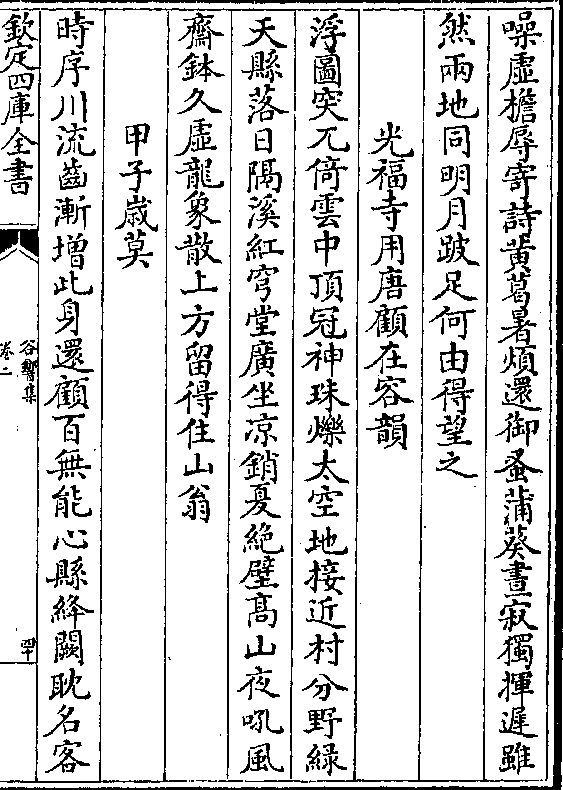 噪虛檐辱寄詩黃葛暑煩還御蚤蒲葵晝寂獨揮遲雖
然兩地同明月跛足何由得望之
光福寺用唐顧在容韻
浮圖突兀倚雲中頂冠神珠爍太空地接近村分野緑
天縣落日隔溪紅穹堂廣坐凉銷夏絶壁髙山夜吼風
齋鉢久虛龍象散上方留得住山翁
甲子歳莫
時序川流齒漸增此身還顧百無能心縣絳闕耽名客
欽定四庫全書
谷響集
卷二